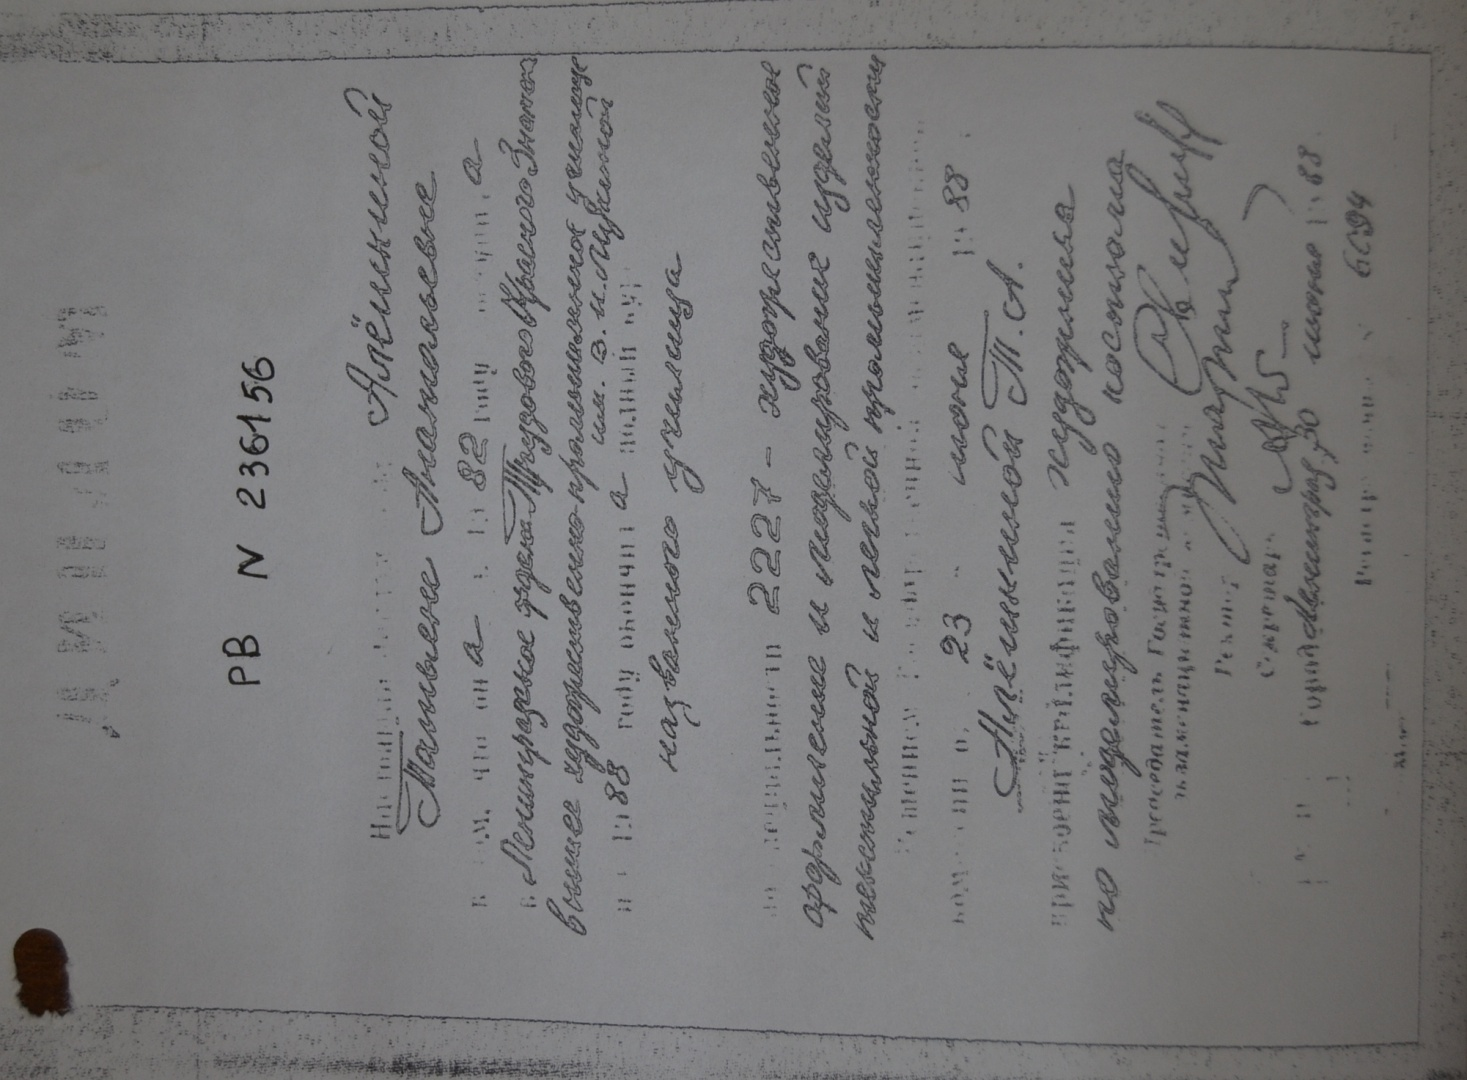 ДИПЛОМ
РВ N 236156
Настоящий Алёшиной
Татьяне Анатольевне
в том, что он а в 19 82 году поступил а
в Ленинградское ордена Трудового Красного Знамени
высшее художественно-промышленное училище
им. В. И. Мухиной
и в 19 88 году окончил а полный курс
названного училища
по специальности 2227 - художественное
оформление и моделирование изделий
текстильной и легкой промышленности
Решением Государственной экзаменационной
комиссии от 23 июня 19 88
Алёшиной Т.А.
присвоена квалификация художника
по моделированию костюма
Председатель Государственной
экзаменационной
Ректор
Секретарь
Город Ленинград, 30 июня 19 88